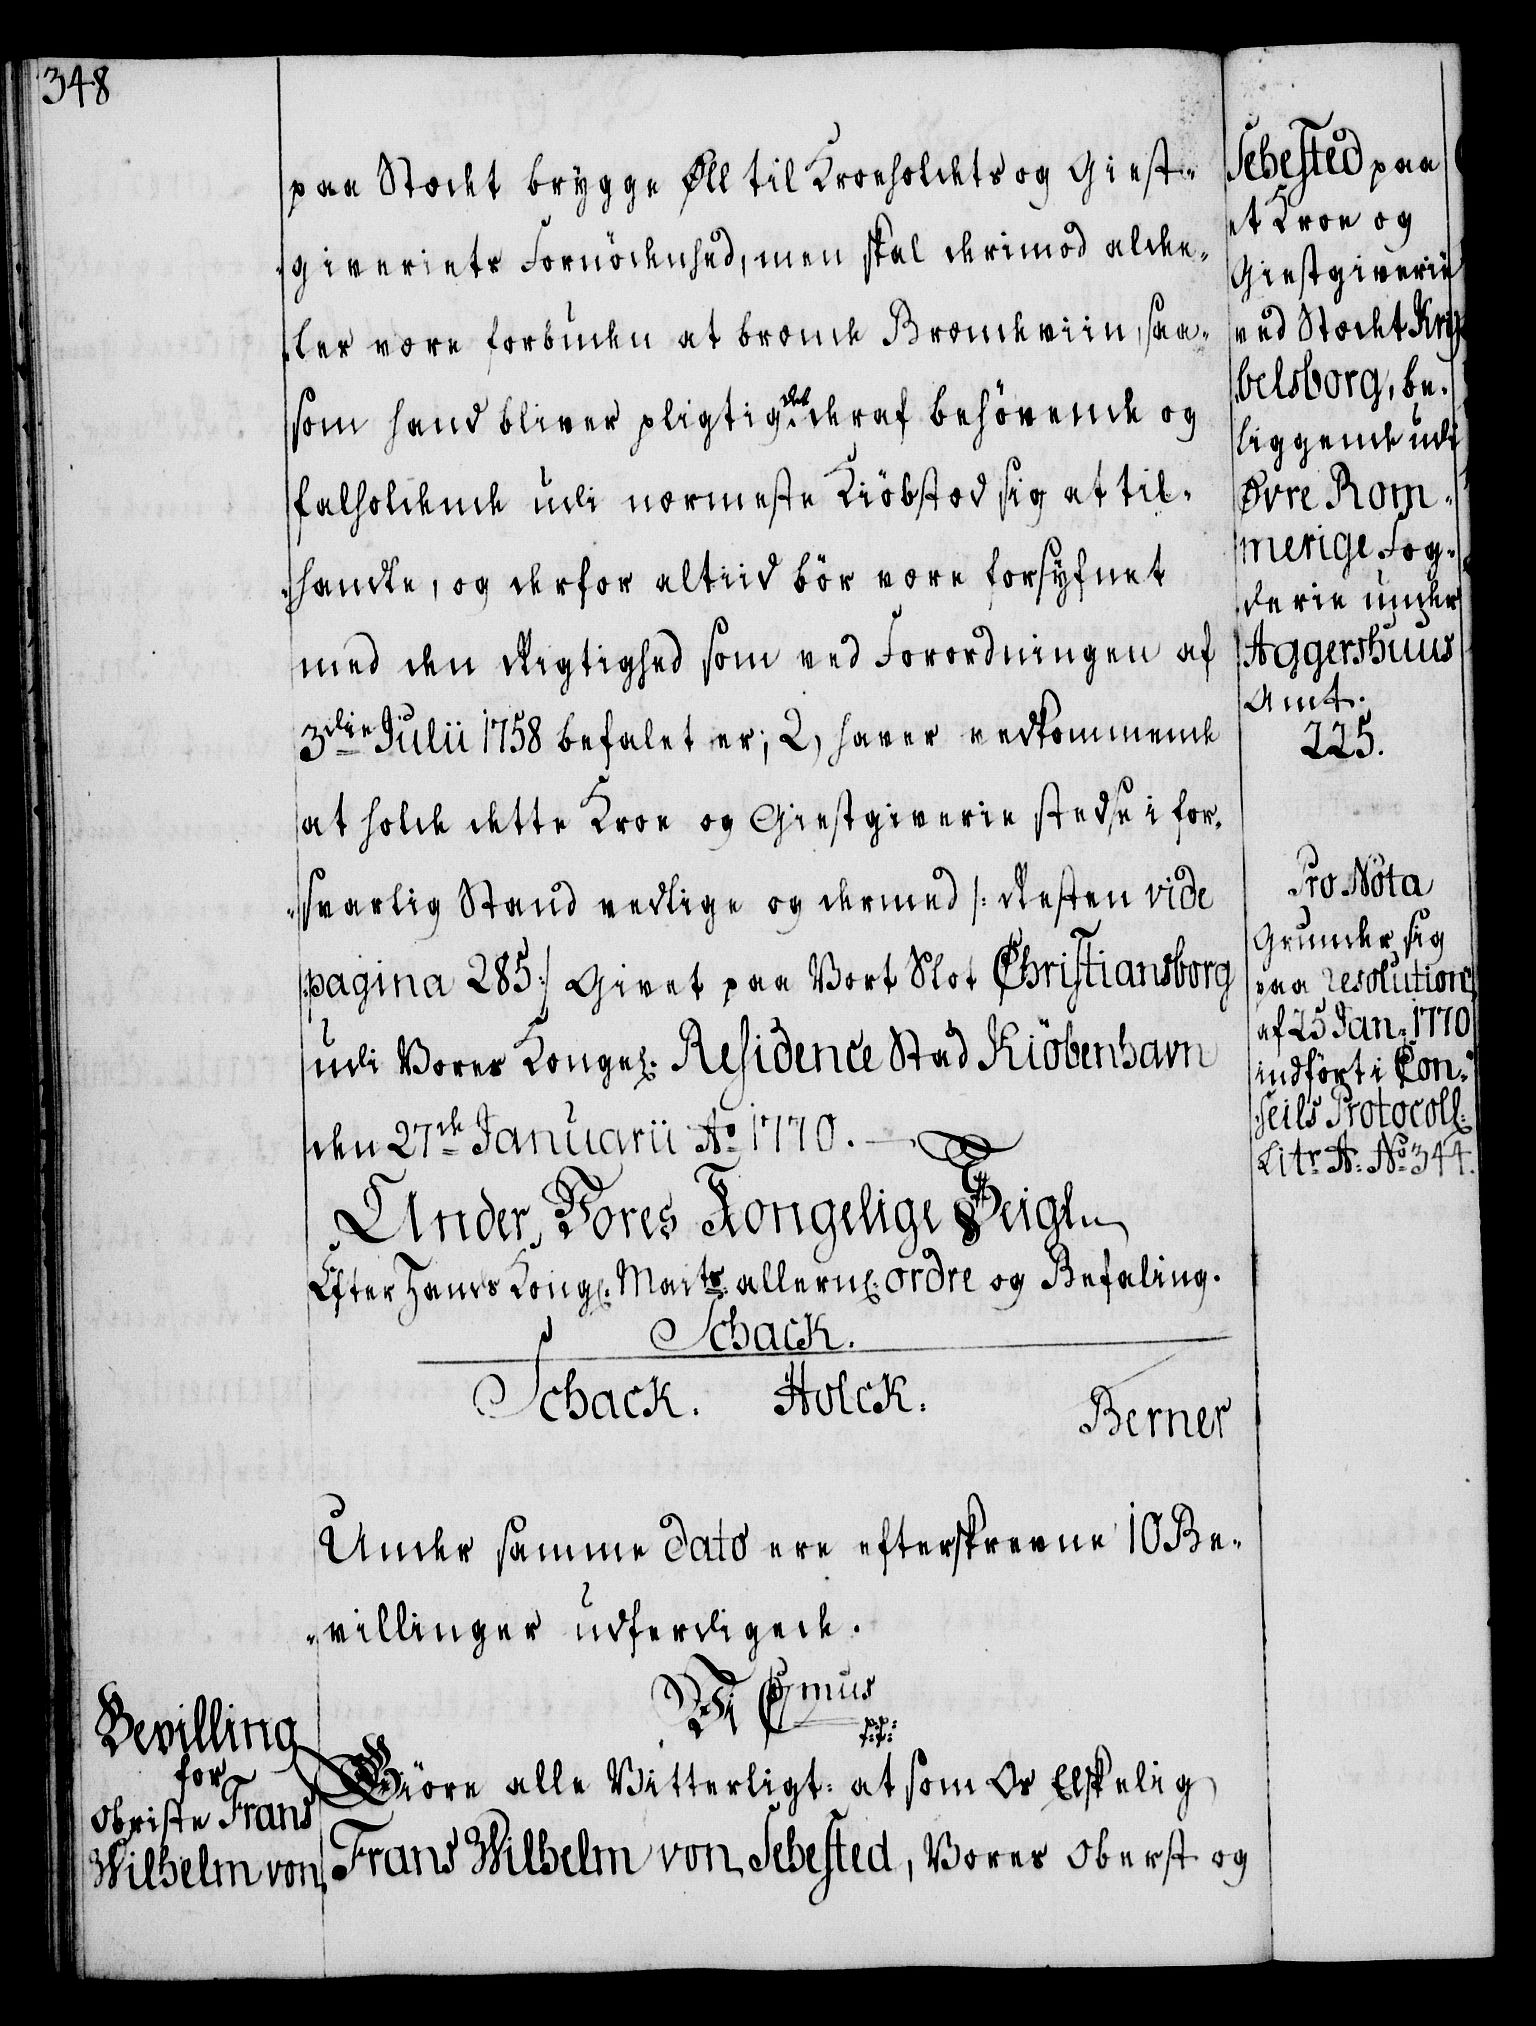 348
paa Stædet brygge Øll til Kroeholdets og Giest-
giveriets Fornödenhed, men skal derimod aldee-
-les være forbuden at brænde Brændeviin, saa-
som hand bliver pligtig det deraf behövende og
falholdende udi nærmeste Kiöbstæd sig at til-
-handle, og derfor altiid bör være forsyfnet
med den Rigtighed som ved Forordningen af
3die Julii 1758 befalet er; 2, haver vedkommende
at holde dette Kroe og Giestgiverie stedse i for-
-svarlig Stand vedlige og dermed /: Resten vide
pagina 285:/ Givet paa Vort Slot Christiansborg
udi Vores Kongel: Residence Stad Kiöbenhavn
den 27de Januarii Ao 1770.
Under Vores Kongelige Seigl
Efter Hands Kongl: Maits: allern: ordre og Befaling.
Schack.
Schack. Holck.
Berner
Under samme Dato ere efterskrevne 10 Be-
-villinger udferdigede.
Wi C 7mus
p:p:
Giöre alle Vitterligt: at som Os Elskelig
Frans Wilhelm von Sehested, Vores Oberst og
Bevilling
for
Obriste Frans
Wilhelm von
Sehested paa
et Kroe og
Giestgiverie
ved Stædet Kry
belsborg, be-
liggende udi
Øvre Rom-
merige Fog-
derie under
Aggershuus
Amt.
225.
Pro Nota
Grunder sig
paa resolution
af 25 Jan: 1770
indfört i Con-
seils Protocoll:
Litr: A: No 344.